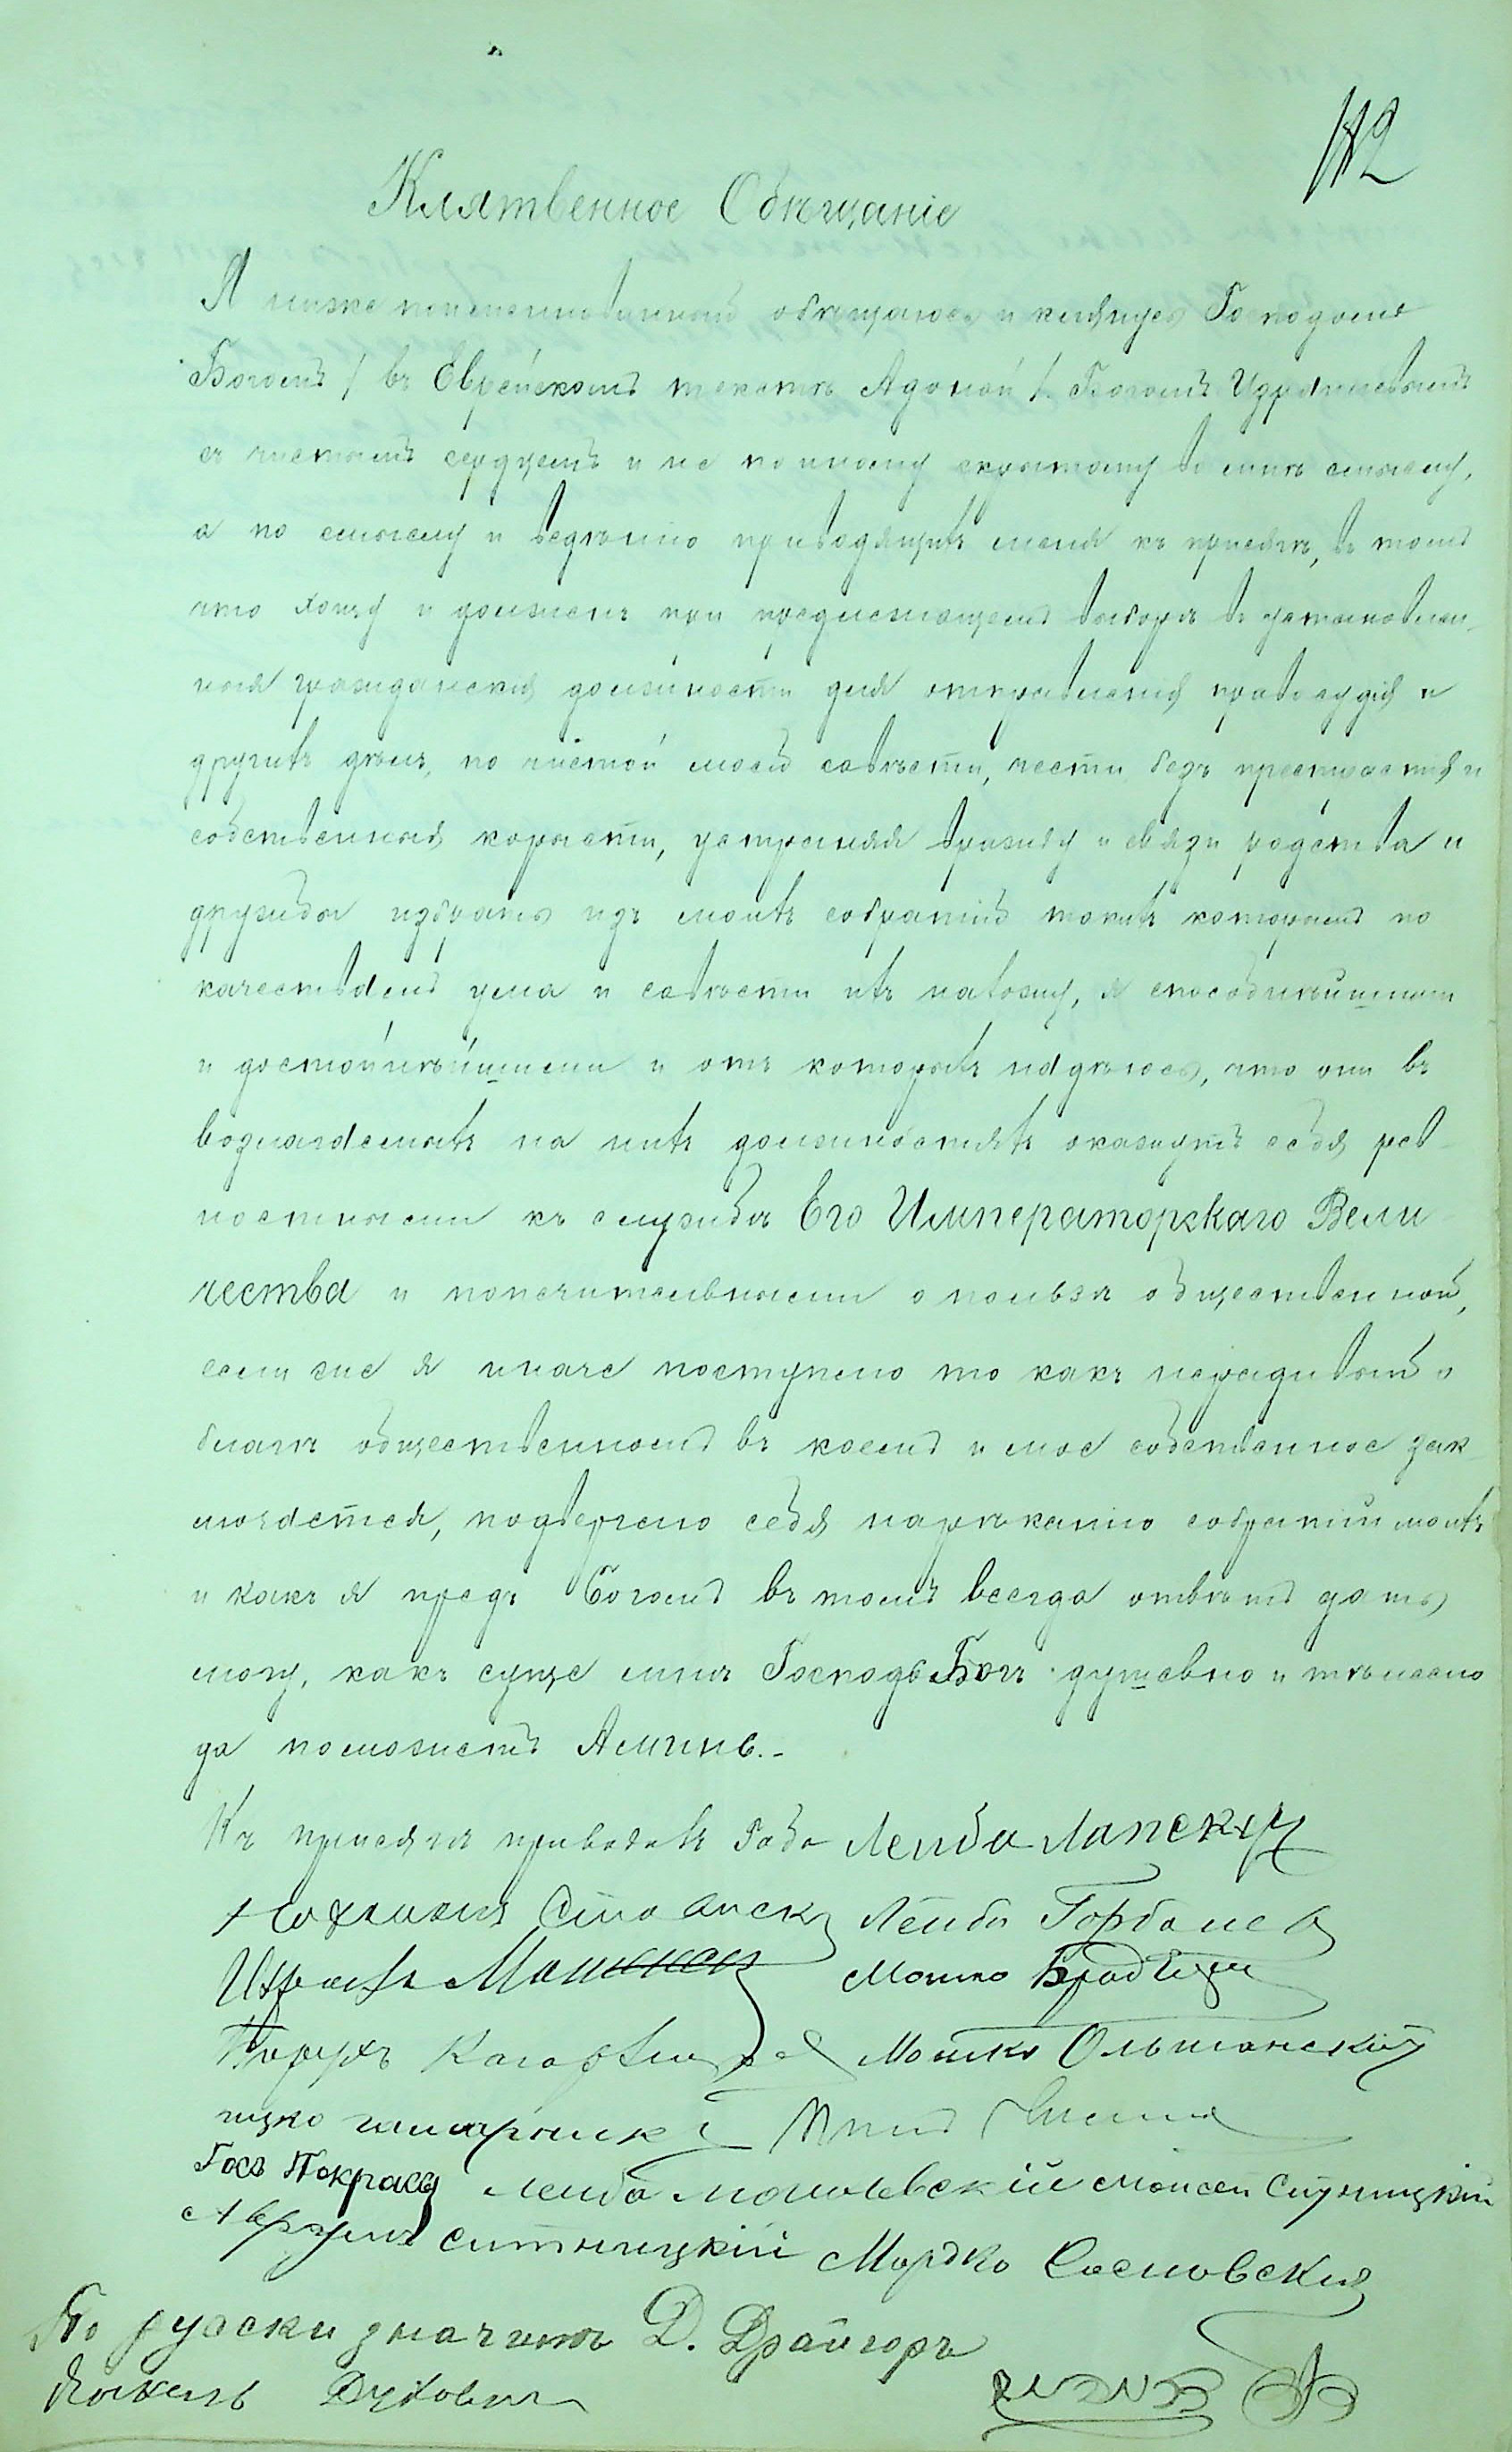 112
Клятвенное Обѣщаніе
Я ниже поименованный обѣщаюсь и клянусь Господомъ
Богомъ / въ Еврейскомъ текстѣ Адонай /. Богомъ Израилевымъ
съ чистымъ сердцемъ и не по иному скрытому во мнѣ смыслу,
а по смыслу и вѣдѣнію приводящихъ меня къ присягѣ, въ томъ
что хощу и долженъ при предлежащемъ выборѣ въ установлен-
ныя гражданскія должности для отправленія правосудія и
другихъ дѣлъ, по чистой моей совѣсти, чести безъ пристрастія и
собственныя корысти, устраняя вражду и связи родства и
дружбы избрать изъ моихъ собратій такихъ которыхъ по
качествамъ ума и совѣсти ихъ нахожу, я способнѣйшими
и достойнѣйшими и отъ которыхъ надѣюсь, что они въ
возлагаемыхъ на нихъ должностяхъ окажутъ себя рев-
ностными къ службѣ Его Императорскаго Вели
чества и попечительными о пользѣ общественной,
если же я иначе поступлю то какъ нерадивый о
благѣ общественномъ въ коемъ и мое собственное зак
лючается, подвергаю себя нарѣканію собратій моихъ
и какъ я предъ Богомъ въ томъ всегда отвѣтъ дать
могу, какъ суще мнѣ Господь Богъ душевно и тѣлесно
да поможетъ Аминь.-
Къ присягѣ приводилъ Лейба Лапскій
Лейба Горбонев
Мошко Бродецки
Мошко Ольшанскій
ицко
Гось Покрасъ Лейба Могилевскій Мойсей Ситницкій
Аврумъ Ситницкій Мордко Сосновский
По русски значитъ Д. Драйгоръ
Духовны